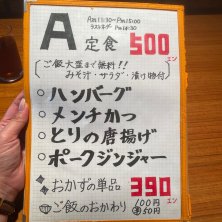 A定食 AM11:30~PM15:00
ラストオーダー PM14:30
500エン
(ご飯大盛まで無料!!
みそ汁・サラダ・漬け物付)
○ハンバーグ
○メンチかつ
○とりの唐揚げ
○ポークジンジャー
おかずの単品 390エン
ご飯のおかわり 100円
50円